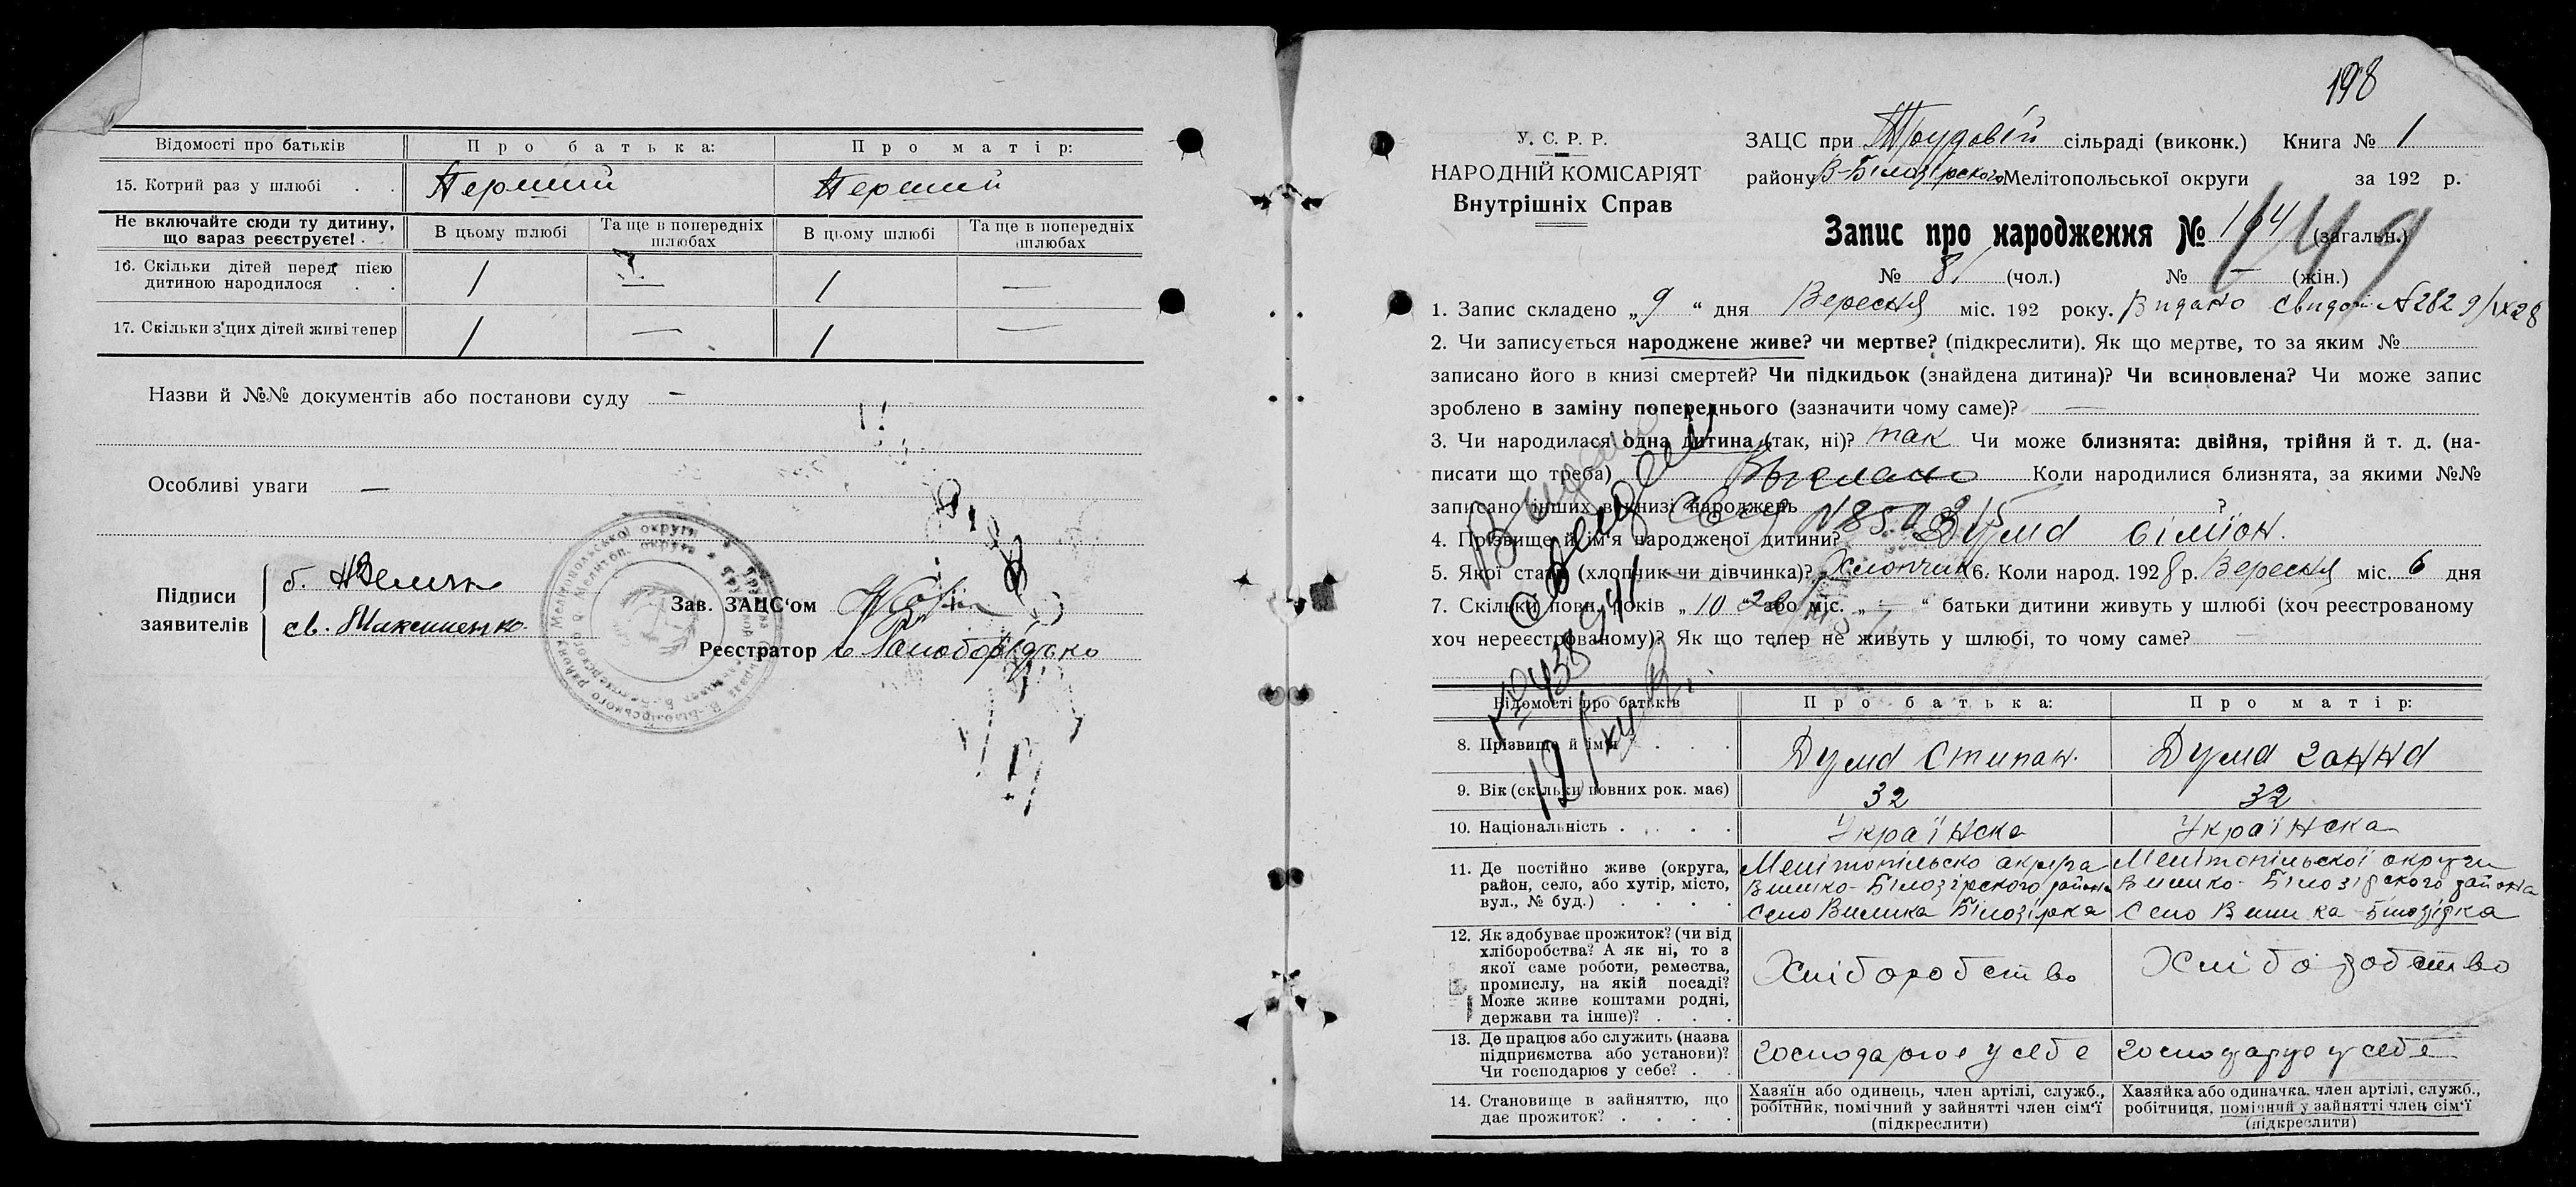 Відомості про батьків Про батька: Про матір:
15. Котрий раз у шлюбі . . Перший Перший
Не включайте сюди ту дитину, що вараз реєструєте! В цьому шлюбі Та ще в попередніх шлюбах В цьому шлюбі Та ще в попередніх шлюбах
16. Скільки дітей перед цією
дитиною народилося . . 1 — 1 —
17. Скільки з'цих дітей живі тепер 1 — 1 —
Назви й №№ документів або постанови суду —
Особливі уваги —
Підписи
заявителів
св. Максименко
Зав. ЗАЦС'ом
Реєстратор
198
У. С. Р. Р.
НАРОДНІЙ КОМІСАРІЯТ
Внутрішніх Справ
ЗАЦС при Трудовій сільраді (виконк.) Книга № 1
району В-Білозірского Мелітопольської округи за 192 р.
Запис про народження № 164 (загальн.)
149
№ 81 (чол.) № — (жін.)
1. Запис складено „9“ дня Вересня міс. 192 року. Видано свидоц №282 9/IX28
2. Чи записується народжене живе? чи мертве? (підкреслити). Як що мертве, то за яким №
записано його в книзі смертей? Чи підкидьок (знайдена дитина)? Чи всиновлена? Чи може запис
зроблено в заміну попереднього (зазначити чому саме)? —
3. Чи народилася одна дитина (так, ні)? так Чи може близнята: двійня, трійня й т. д. (на-
писати що треба) Коли народилися близнята, за якими №№
записано інших в книзі народжень
4. Прізвище й ім'я народженої дитини? Дума Сіміон.
5. Якої стати (хлопчик чи дівчинка)? Хлопчик 6. Коли народ. 1928 р. Вересня міс. 6 дня
7. Скільки повн. років „10“ або міс. „—“ батьки дитини живуть у шлюбі (хоч реєстрованому
хоч нереєстрованому)? Як що тепер не живуть у шлюбі, то чому саме?
Видано
Відомості про батьків Про батька: Про матір:
8. Прізвище й ім'я . . . Дума Стипан. Дума Ганна
9. Вік (скільки повних рок. має) 32 32
10. Національність . . . . Українска Українска
11. Де постійно живе (округа,
район, село, або хутір, місто,
вул., № буд.) . . . .
Мелітопільско округа
Вилико-Білозірского района
Село Вилика Білозірка
Мелітопільскої округи
Вилико-Білозірского района
Село Вилика-Білозірка
12. Як здобуває прожиток? (чи від
хліборобства? А як ні, то з
якої саме роботи, ремества,
промислу, на якій посаді?
Може живе коштами родні,
держави та інше)? . . .
Хліборобство Хліборобство
13. Де працює або служить (назва
підприємства або установи)?
Чи господарює у себе? . .
господарює у себе господарує у себе
14. Становище в зайняттю, що
дає прожиток? . . . .
Хазяїн або одинець, член артілі, служб.,
робітник, помічний у зайнятті член сім'ї
(підкреслити)
Хазяйка або одиначка, член артілі, служб.,
робітниця, помічний у зайнятті член сім'ї
(підкреслити)